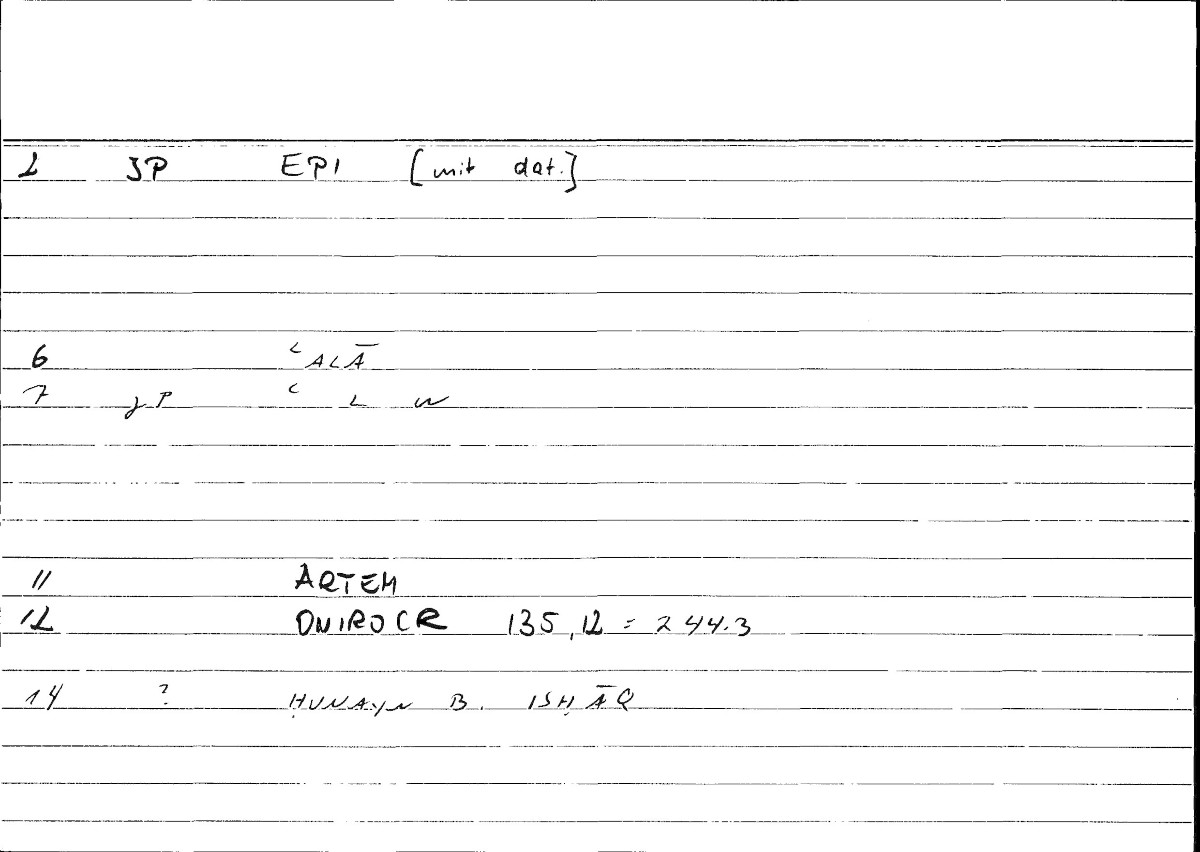 2 JP EPI [mit dat.]
6 ʿALĀ
7 JP ʿ L W
11 ARTEM
12 ONIROCR 135,12 = 244.3
14 ? ḤUNAYN B. ISḤĀQ